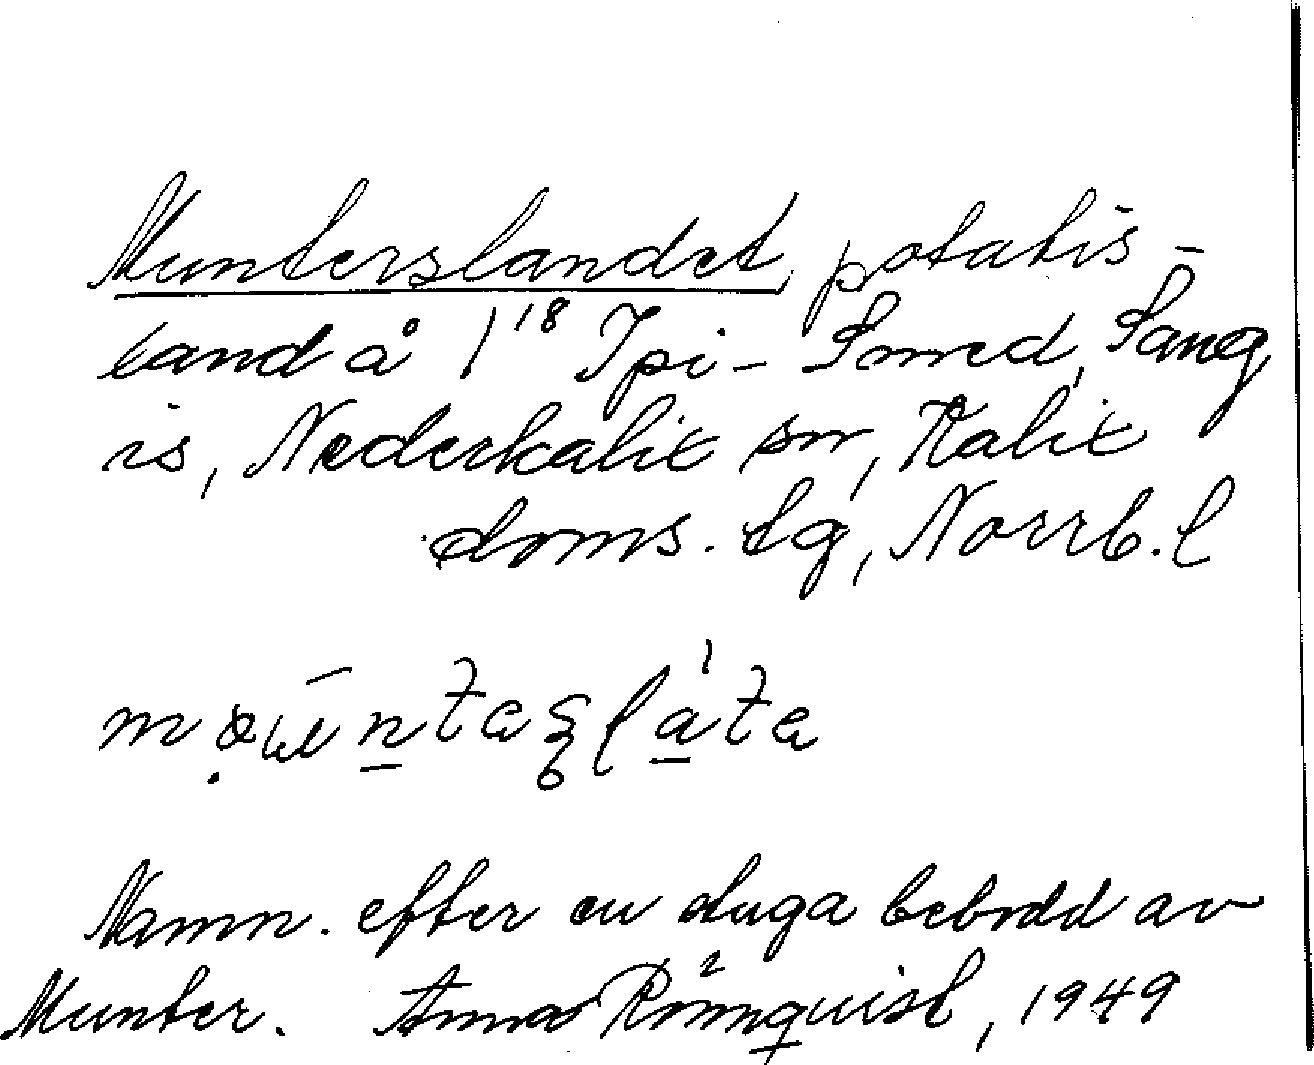 Munterslandet, potatis-
land å 1¹⁸ Ipi-Smed, Sang
is, Nederkalix sn, Kalix
doms. lg, Norrb. l
Namn. efter en stuga bebodd av
Munter. Anna Rönnquist, 1949